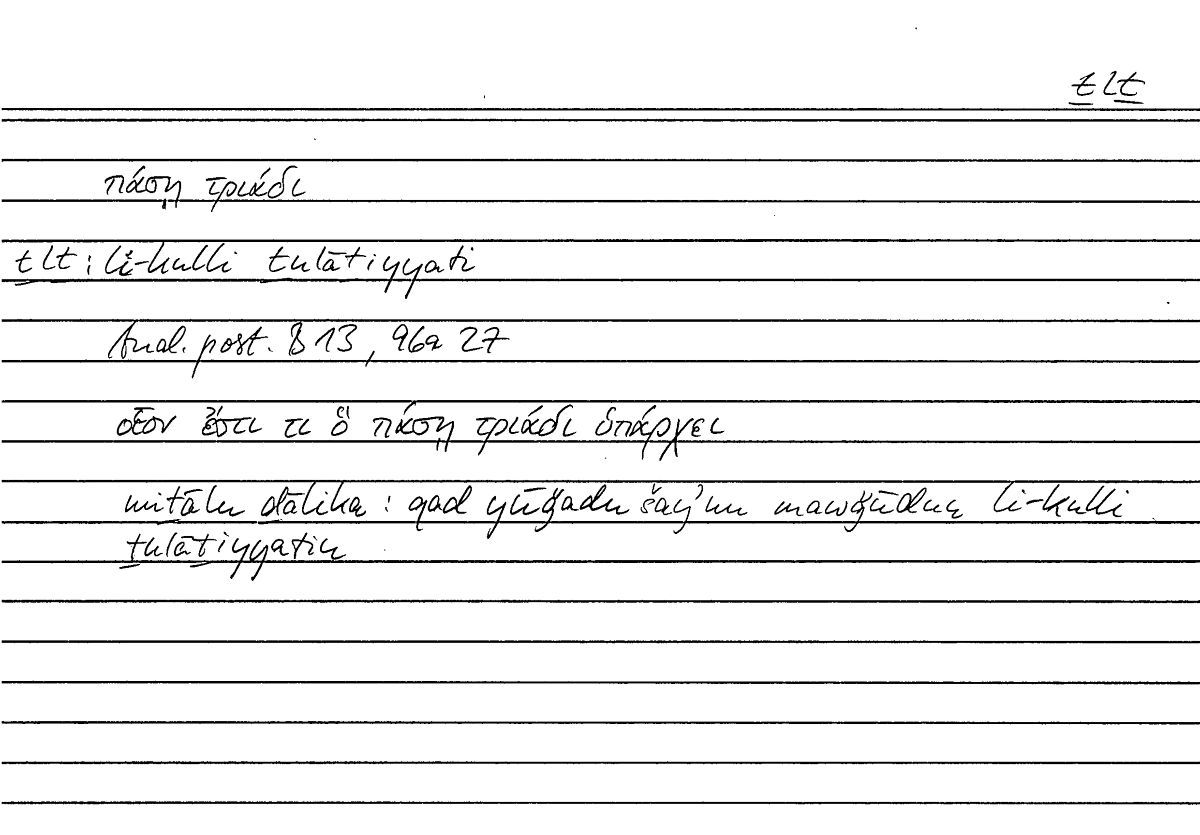 ṯlṯ
πάσῃ τριάδι
ṯlṯ: li-kulli ṯulāṯiyyati
Anal. post. B 13, 96a 27
οἷον ἔστι τι ὃ πάσῃ τριάδι ὑπάρχει
miṯālu ḏālika: qad yūǧadu šay'un mawǧūdun li-kulli
ṯulāṯiyyatin